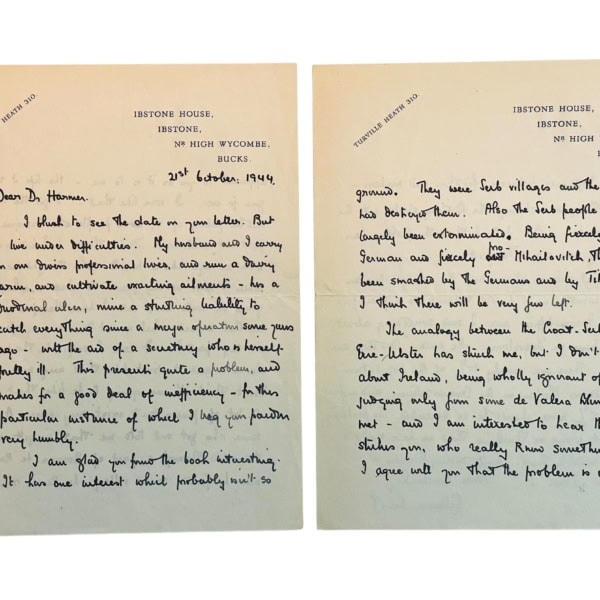 HEATH 310.
IBSTONE HOUSE,
IBSTONE,
NR HIGH WYCOMBE,
BUCKS.
21st October, 1944.
Dear Dr Harmer.
I blush to see the date on your letter. But
live under difficulties. My husband and I carry
on our divers professional lives, and run a dairy
farm, and cultivate exacting ailments - his a
duodenal ulcer, mine a startling liability to
catch everything since a major operation some years
ago - with the aid of a secretary who is herself
pretty ill. This presents quite a problem, and
makes for a good deal of inefficiency - for this
particular instance of which I beg your pardon
very humbly.
I am glad you found the book interesting.
It has one interest which probably isn't so
TURVILLE HEATH 310.
IBSTONE HOUSE,
IBSTONE,
NR HIGH
ground. They were Serb villages and the
had destroyed them. Also the Serb people
largely been exterminated. Being fiercely
German and fiercely pro-Mihailovitch, th
been smashed by the Germans and by Tit
I think there will be very few left.
The analogy between the Croat-Serb
Eire-Ulster has struck me, but I don't
about Ireland, being wholly ignorant of
judging only from some de Valera
met - and I am interested to hear th
strikes you, who really know something
I agree with you that the problem is